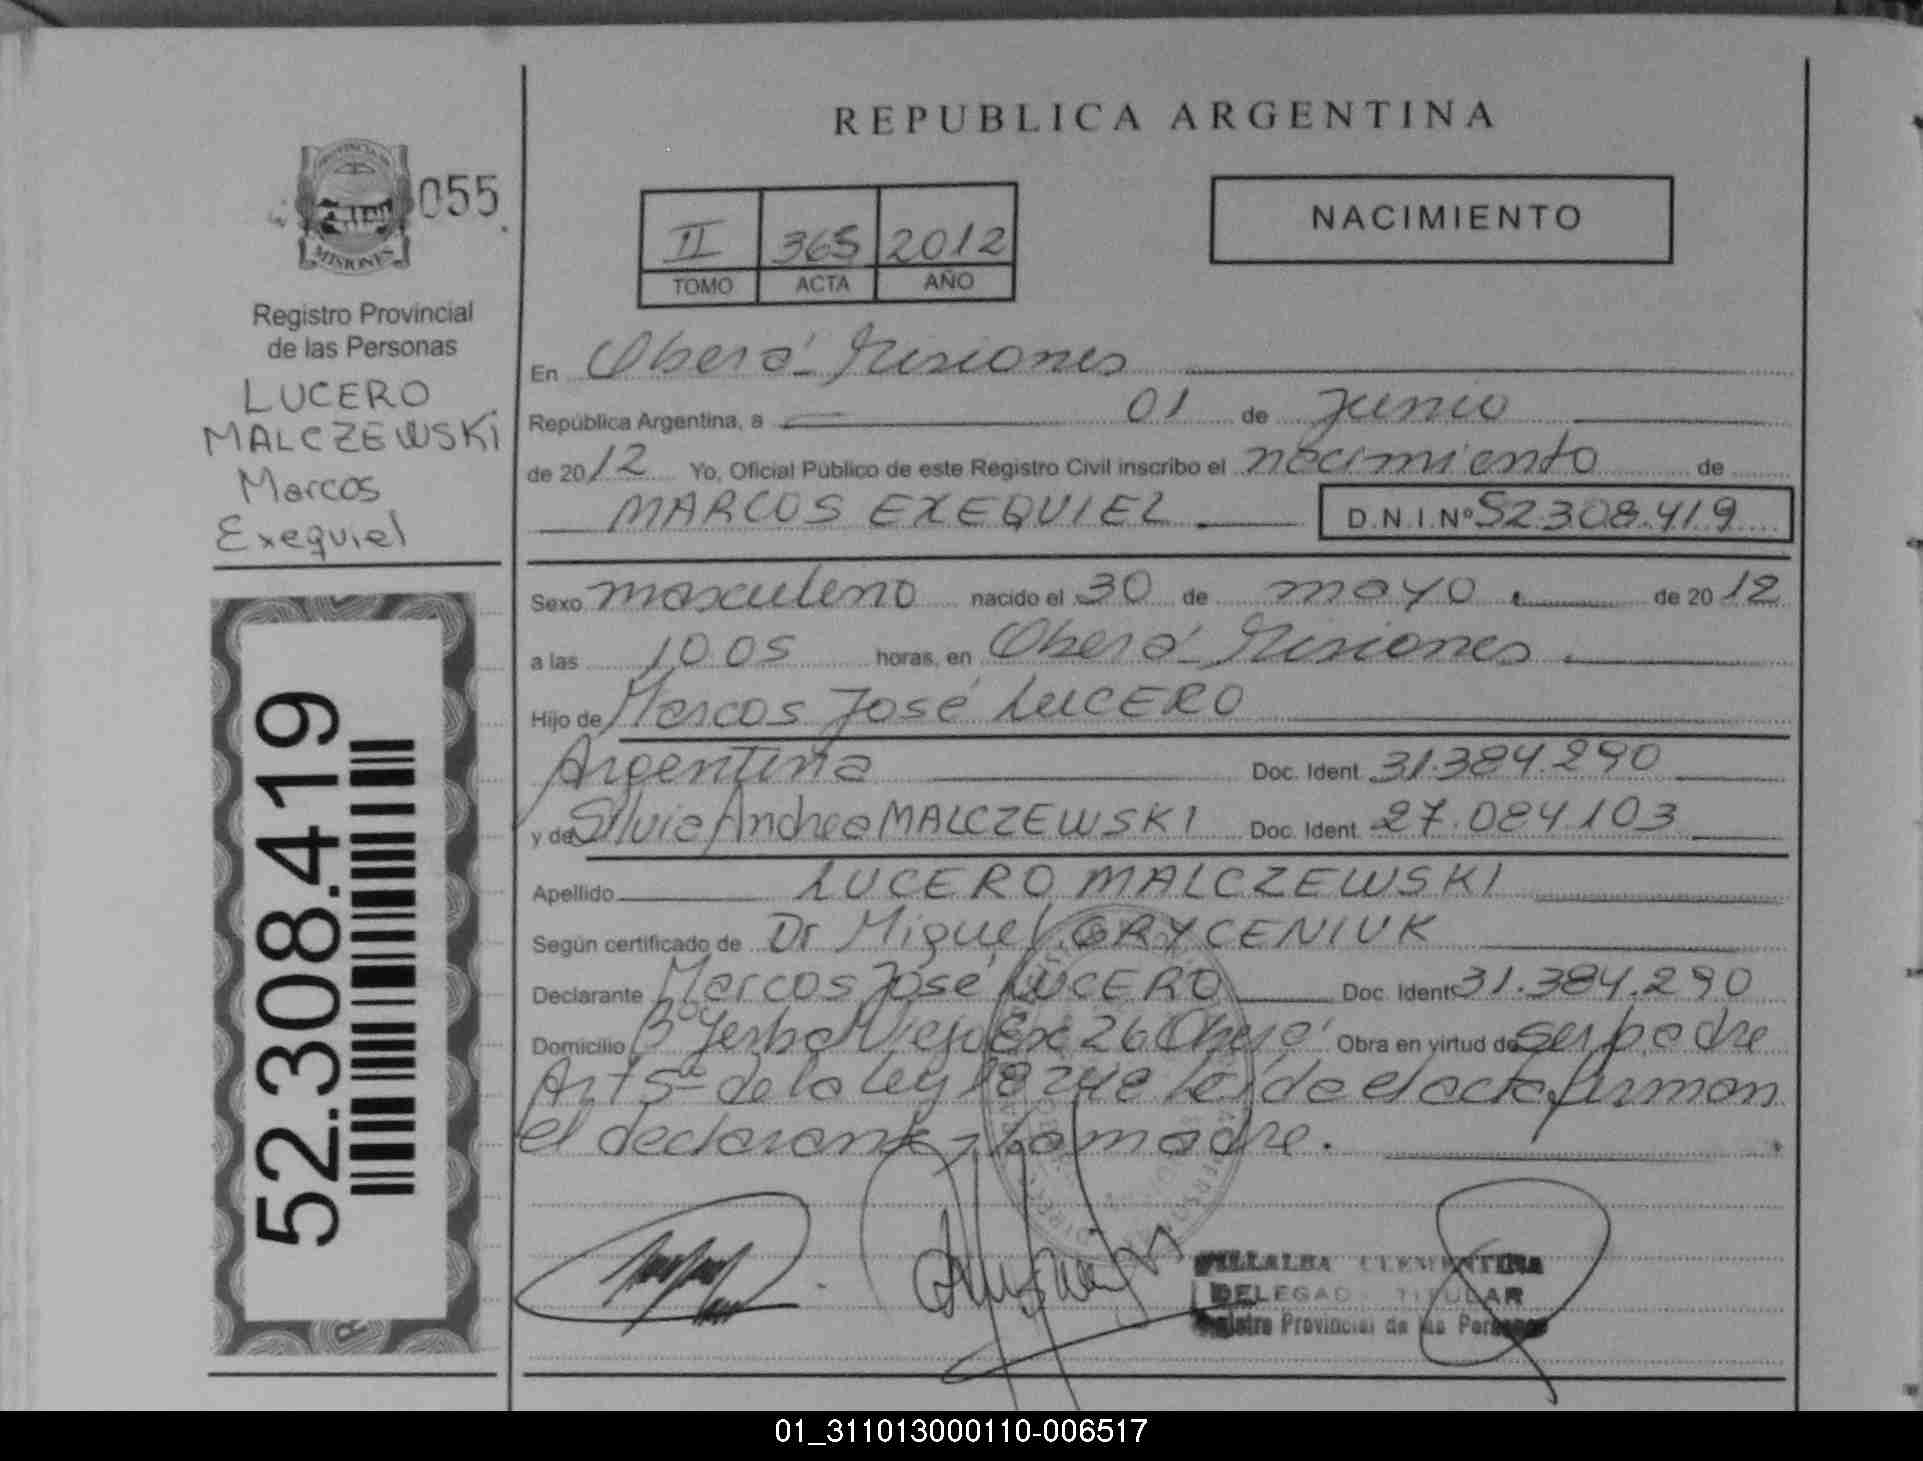 REPUBLICA ARGENTINA
PROVINCIA DE
MISIONES
055
Registro Provincial
de las Personas
LUCERO
MALCZEWSKI
Marcos
Exequiel
52.308.419
II 365 2012
TOMO ACTA AÑO
NACIMIENTO
En Oberá Misiones
República Argentina, a 01 de Junio
de 2012 Yo, Oficial Público de este Registro Civil inscribo el nacimiento de
MARCOS EXEQUIEL D.N.I.Nº 52.308.419
Sexo masculino nacido el 30 de mayo de 2012
a las 10 05 horas, en Oberá Misiones
Hijo de Marcos José LUCERO
Argentina Doc. Ident. 31.384.290
y de Silvia Andrea MALCZEWSKI Doc. Ident. 27.084.103
Apellido LUCERO MALCZEWSKI
Según certificado de Dr Miguel GRYCENIUK
Declarante Marcos José LUCERO Doc. Ident. 31.384.290
Domicilio Bº Yerba Vieja Ex 26 Oberá Obra en virtud de ser padre
Art 5º de la Ley 18248 Leída el acta firman
el declarante y la madre.
VILLALBA CLEMENTINA
DELEGADO TITULAR
Registro Provincial de las Personas
01_311013000110-006517